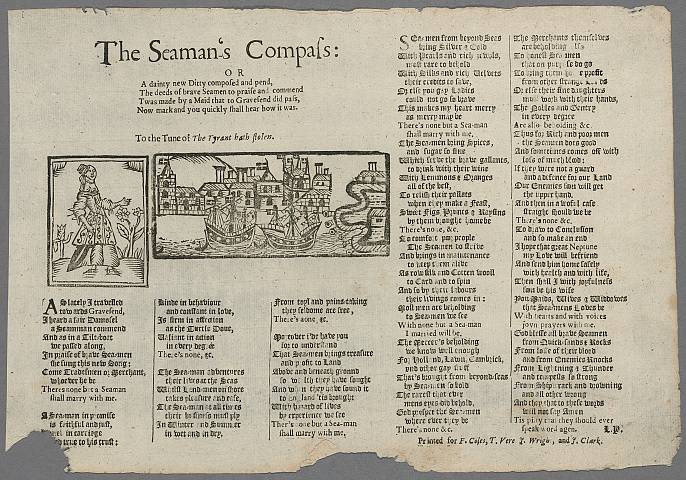 The Seaman's Compass:
OR
A dainty new Ditty composed and pend,
The deeds of brave Seamen to praise and commend
Twas made by a Maid that to Gravesend did pass,
Now mark and you quickly shall hear how it was.
To the Tune of The Tyrant hath stolen.
AS lately I travelled
towards Gravesend,
I heard a fair Damosel
a Seamman commend
And as in a Tilt-boat
we passed along,
In praise of brave Seamen
she sung this new Song:
Come Tradesmen or Merchant,
whoever he be
Theres none but a Seaman
shall marry with me.
A Seaman in promise
is faithful and just,
in carriage
true to his trust;
Kinde in behaviour
and constant in love,
Is firm in affection
as the Turtle Dove,
Valiant in action
in every degree.
There's none, &c.
The Seaman adventures
their lives at the Seas
Whilst Land-men on shore
takes pleasure and ease,
The Seaman at all times
their business must ply
In Winter and Summer
in wet and in dry.
From toyl and pains-taking
they seldome are free,
There's none, &c.
Moreover ide have you
for to understand
That Seamen brings treasure
and profit to Land
Above and beneath ground
for wealth they have sought
And when they have found it
to our land 'tis bought
With hazard of lives
by experience we see
Ther's none but a Sea-man
shall marry with me,
SEa-men from beyond Seas
bring Silver & Gold
With Pearls and rich jewels,
most rare to behold
With Silks and rich Velvets
their credits to save,
Or else you gay Ladies
could not go so brave
This makes my heart merry
as merry may be
There's none but a Sea-man
shall marry with me,
The Seamen bring Spices,
and Sugar so fine
Which serve the brave gallants,
to drink with their wine
With Lemmons & Oranges
all of the best,
To relish their pallats
when they make a Feast,
Sweet Figs Prunes & Raysins
by them brought home be
There's none, &c.
To comfort poor people
The Seamen do strive
And brings in maintenance
to keep them alive
As raw silk and Cotten wooll
to Card and to Spin
And so by their labours
their livings comes in:
Most men are beholding
to Seamen we see
With none but a Sea-man
I married will be.
The Mercer's beholding
we know well enough
For Holland, Lawn, Cambrick,
and other gay stuff
That's brought from beyond-seas
by Seamen so bold
The rarest that ever
mens eyes did behold,
God prosper the Seamen
where ever they be
There's none &c.
The Merchants themselves
are beholding
To honest Seamen
that on purpose do go
To bring them home profit
from other strange Lands
Or else their fine daughters
must work with their hands,
The Nobles and Gentry
in every degree
Are also beholding &c.
Thus for Rich and poor men
the Seamen does good
And sometimes comes off with
loss of much blood:
If they were not a guard
and a defence for our Land
Our Enemies soon will get
the upper hand,
And then in a woful case
straight should we be
There's none &c.
To draw to Conclusion
and so make an end
I hope that great Neptune
my Love will befriend
And send him home safely
with health and with life,
Then shall I with joyfulness
soon be his wife
You Maids, Wives & Widdows
that Seamens Loves be
With hearts and with voices
joyn prayers with me.
God blesse all brave Seamen
from Quick-sands & Rocks
From loss of their blood
and from Enemies Knocks
From Lightning & Thunder
and tempests so strong
From Shipwrack and drowning
and all other wrong
And they that to these words
will not say Amen
Tis pity that they should ever
speak word agen. L.P.
Printed for F. Coles, T. Vere J. Wright, and J. Clark.